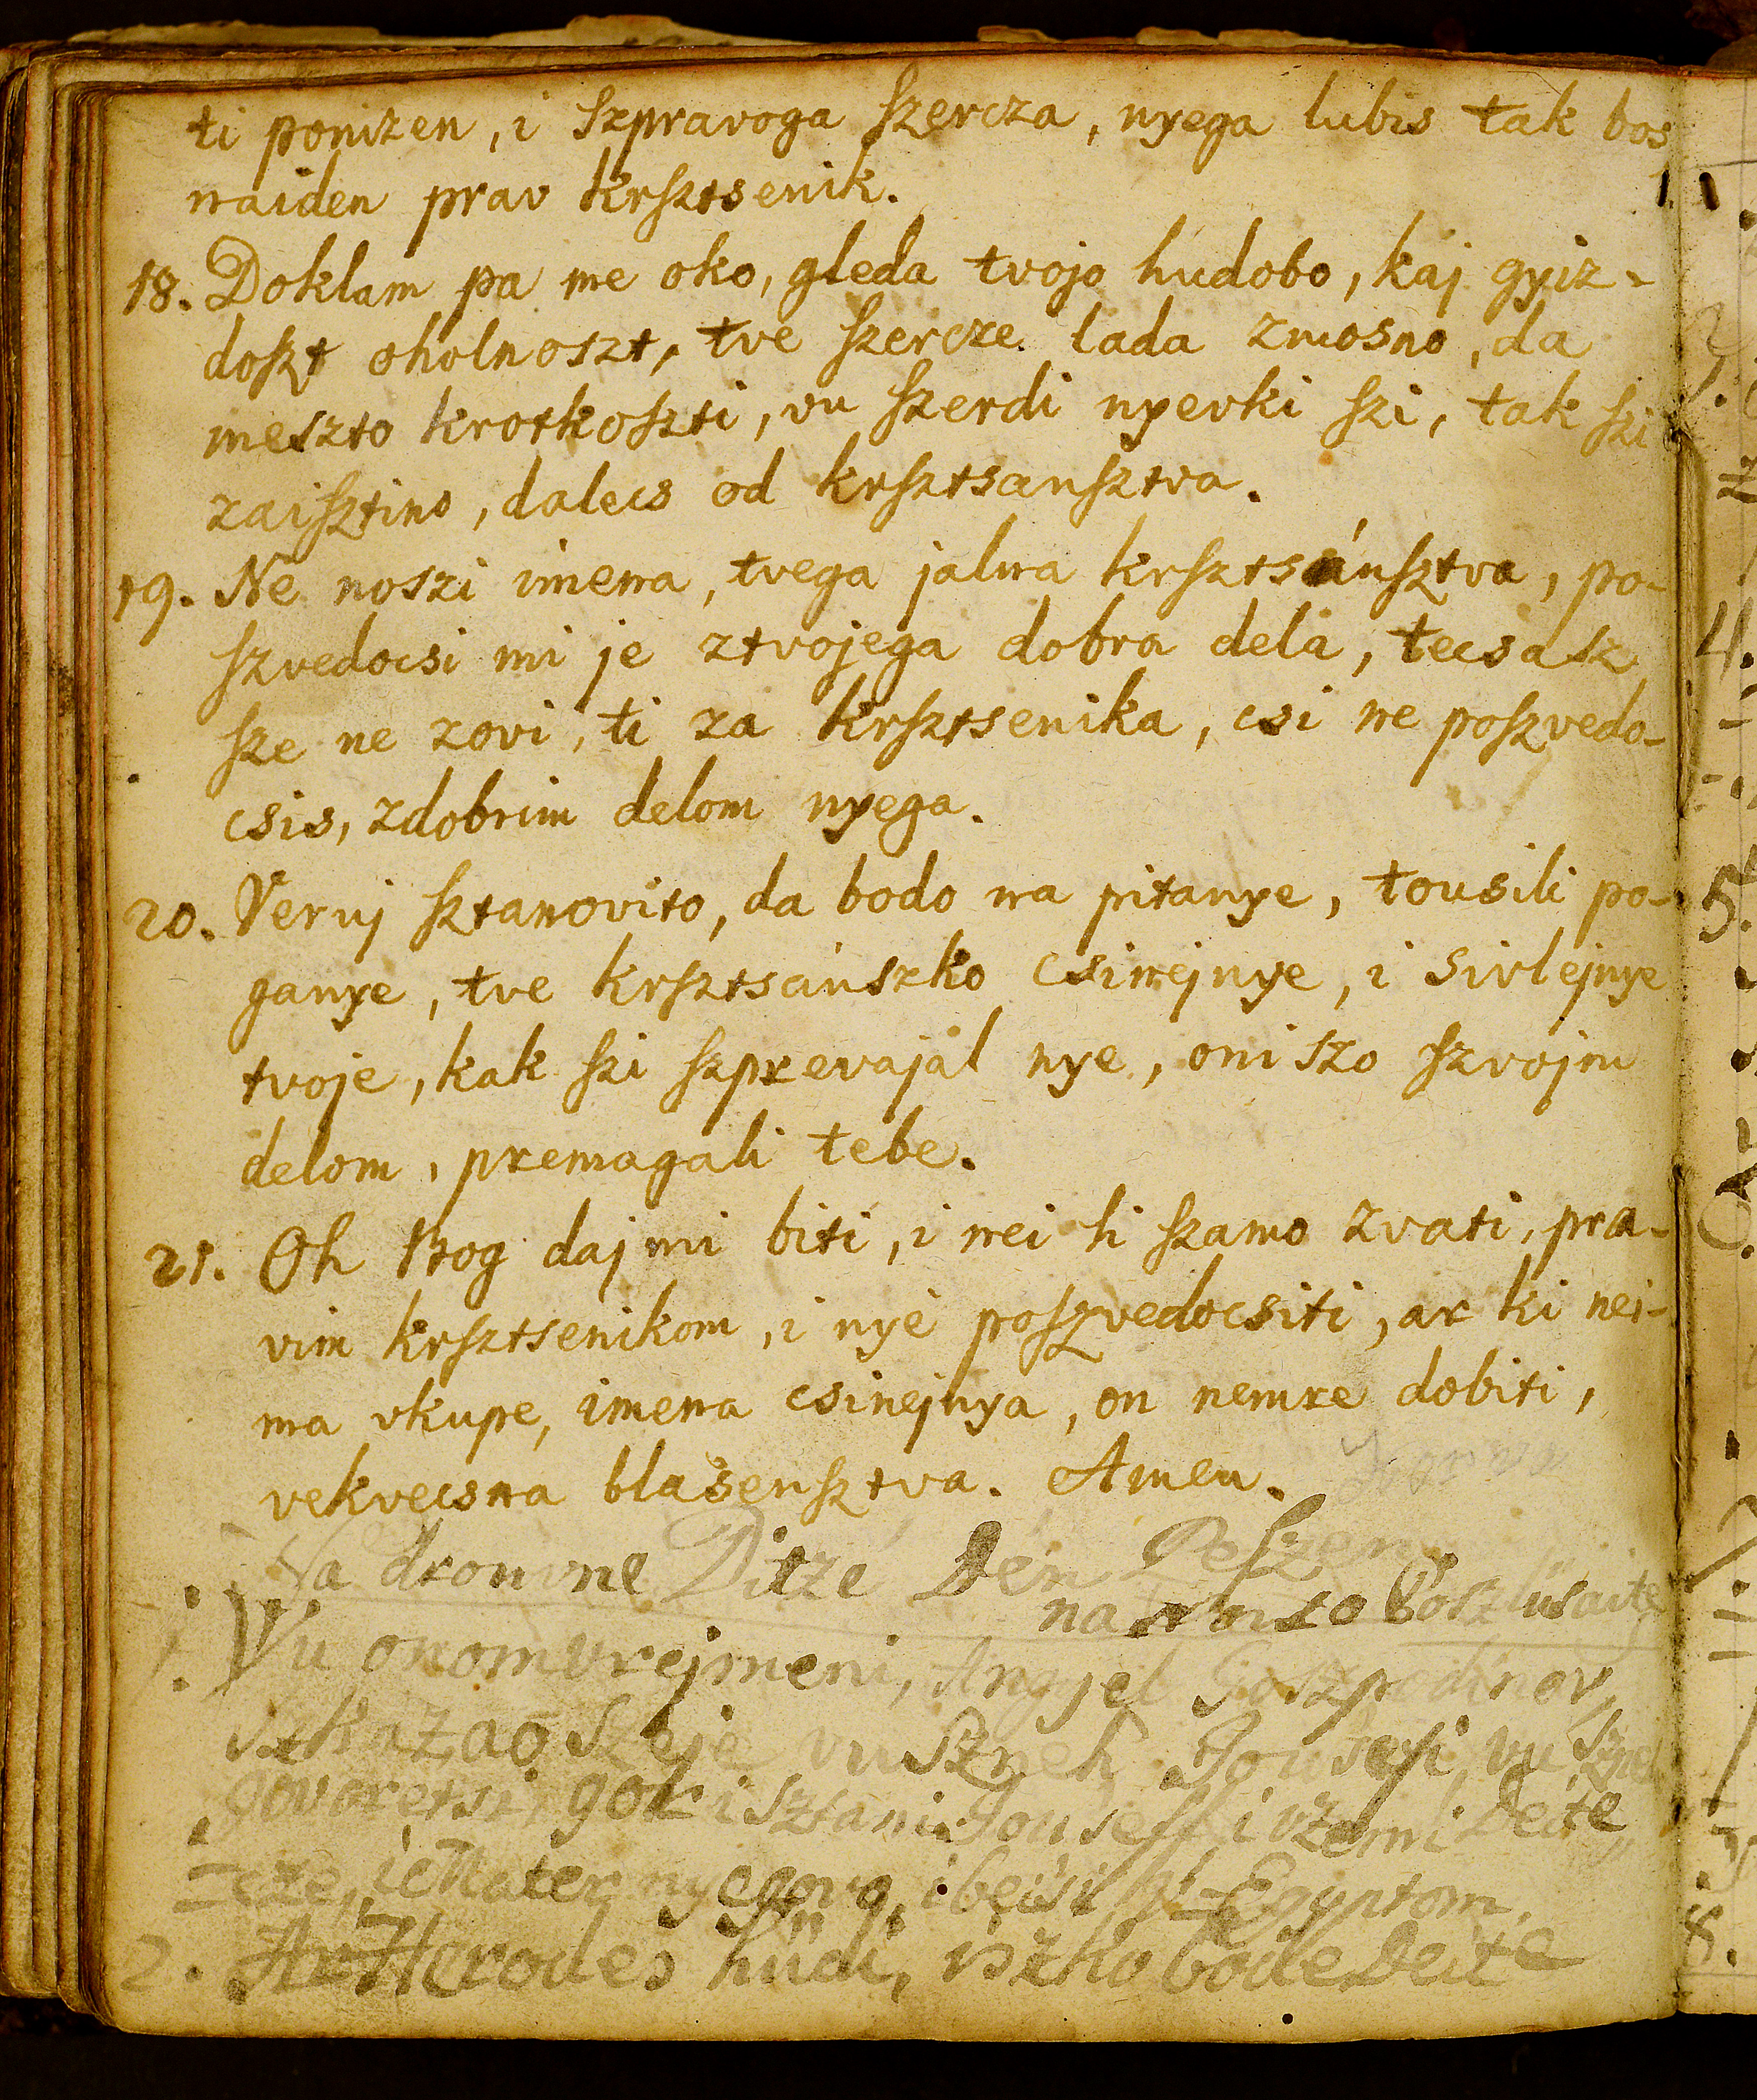 ti ponizen, i szpravoga szercza, nyega lubis tak bos
naiden prav krsztsenik.
18. Doklam pa me oko, gleda tvojo hudobo, kaj gyiz-
doszt oholnoszt, tve szercze lada zmosno, da
meszto krotkoszti, vu szerdi nyerki szi, tak szi
zaisztino, dalecs od krsztsansztva.
19. Ne noszi imena, tvega jalna krsztsánsztva, po-
szvedocsi mi je ztvojega dobra dela, tecsasz
sze ne zovi, ti za krsztsenika, csi ne poszvedo-
csis, zdobrim delom nyega.
20. Veruj sztanovito, da bodo na pitanye, tousili po-
ganye, tve krsztsánszko csinejnye, i sivlejnye
tvoje, kak szi szprevajal nye, oni szo szvojm
delom, premagali tebe.
21. Oh Bog daj mi biti, i nei li szamo zvati, pra-
vim krsztsenikom, i nyé poszvedocsiti, ar ki nei-
ma vkupe, imena csinejnya, on nemre dobiti,
vekvecsna blasensztva. Amen.
Na drouvne Ditzé Dén Peszem
na Notso Poszlüsaite
1. Vu onom vrejmeni, Angyel Goszpodinov,
szkazao szeje vu sznek Jousefi, vu szne
govoretsi, gori sztani Jouseff i vzemi Deite
cze, i Mater nyegovo, i beisi vu Egyptom.
2. Ar Herodes hüdi, iszko bode Deite